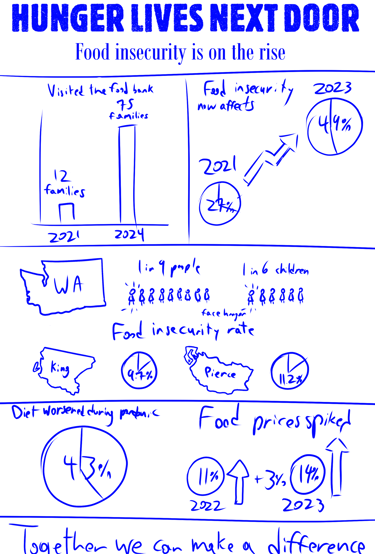 HUNGER LIVES NEXT DOOR
Food insecurity is on the rise
Visited the food bank
75
families
12
families
2021
2024
Food insecurity
now affects
2023
49%
2021
27%
WA
1 in 9 people
1 in 6 children
face hunger
Food insecurity rate
King
9.7%
Pierce
11.2%
Diet worsened during pandemic
43%
Food prices spiked
11%
2022
+ 3%
14%
2023
Together we can make a difference